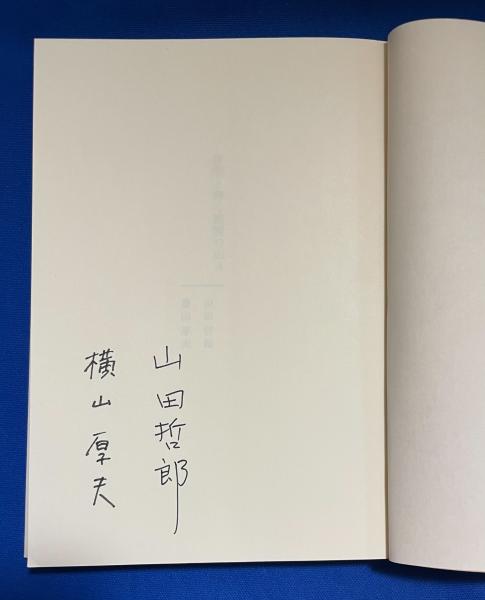 山田哲郎
横山厚夫